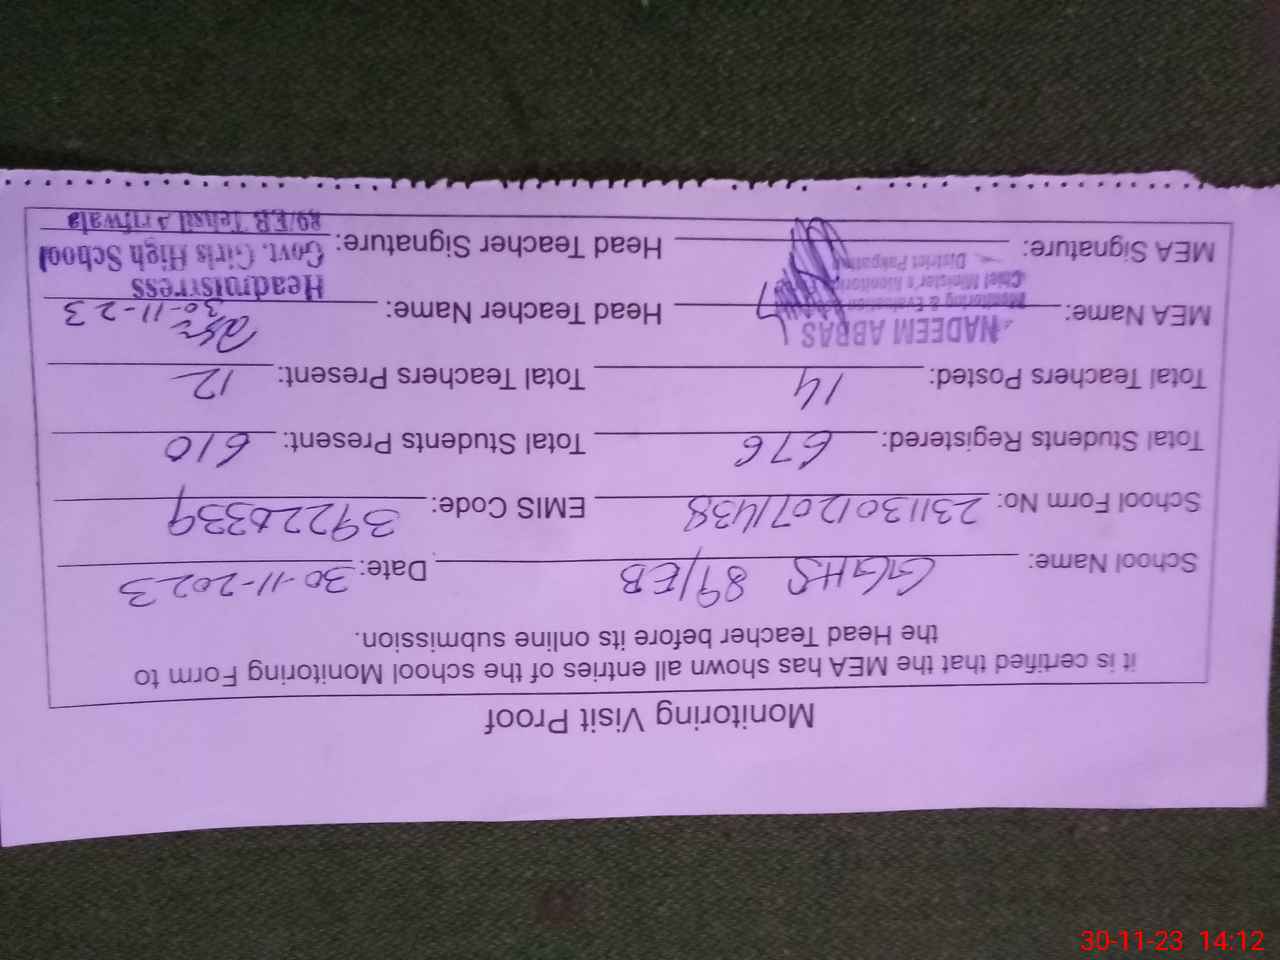 Monitoring Visit Proof
it is certified that the MEA has shown all entries of the school Monitoring Form to
the Head Teacher before its online submission.
School Name: GGHS 89/EB Date: 30-11-2023
School Form No: 23113012071438 EMIS Code: 39226339
Total Students Registered: 676 Total Students Present: 610
Total Teachers Posted: 14 Total Teachers Present: 12
MEA Name: NADEEM ABBAS Head Teacher Name: 30-11-23
Monitoring & Evaluation
Chief Minister's Monitoring
District Pakpattan
Headmistress
MEA Signature: Head Teacher Signature: Govt. Girls High School
89/E.B Tehsil Arifwala
30-11-23 14:12